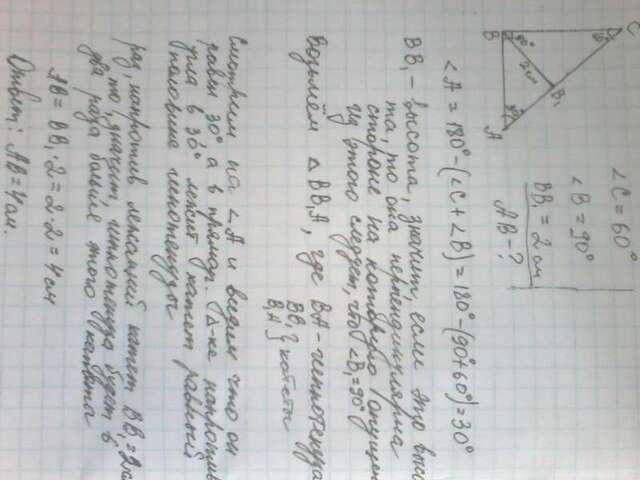 C
60°
B
90°
2 см
B₁
30°
A
∠C = 60°
∠B = 90°
BB₁ = 2 см
AB - ?
∠A = 180° - (∠C + ∠B) = 180° - (90° + 60°) = 30°
BB₁ - высота, значит, если это высо
та, то она перпендикулярна
стороне на которую опущена
из этого следует, что ∠B₁ = 90°
Возьмём △BB₁A, где BA - гипотенуза
BB₁ } катеты
B₁A
Смотрим на ∠A и видем что он
равен 30° а в прямоу. △-ке напротив
угла в 30° лежит катет равный
половине гипотенузы
раз, напротив лежащий катет BB₁ = 2 см
то, значит, гипотенуза будет в
два раза больше этого катета
AB = BB₁ · 2 = 2 · 2 = 4 см
Ответ: AB = 4 см.